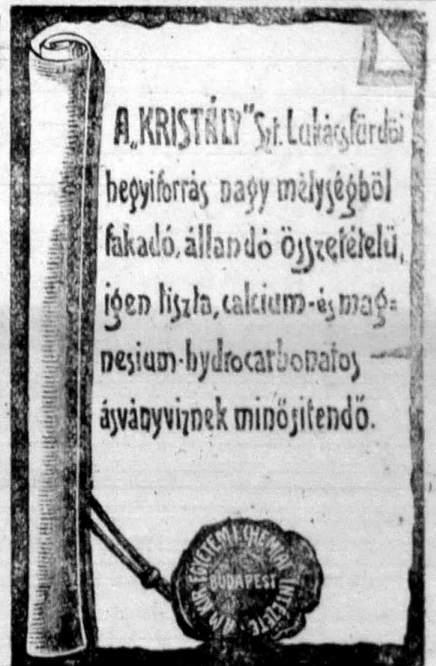 A „KRISTÁLY” Szt. Lukácsfürdői
hegyiforrás nagy mélységből
fakadó, állandó összetételű,
igen tiszta, calcium-és mag-
nesium-hydrocarbonatos
ásványviznek minősitendő.
KIR. EGYETEMI CHEMIAI INTÉZETE
BUDAPEST